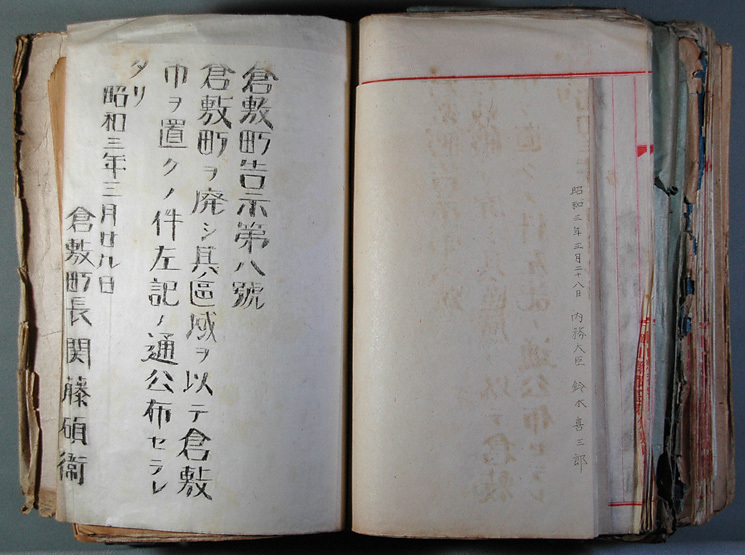 昭和三年三月二十八日 内務大臣 鈴木喜三郎
倉敷町告示第八號
倉敷町ヲ廃シ其區域ヲ以テ倉敷
市ヲ置クノ件左記ノ通公布セラレ
タリ
昭和三年三月廿八日
倉敷町長 関藤碩衛